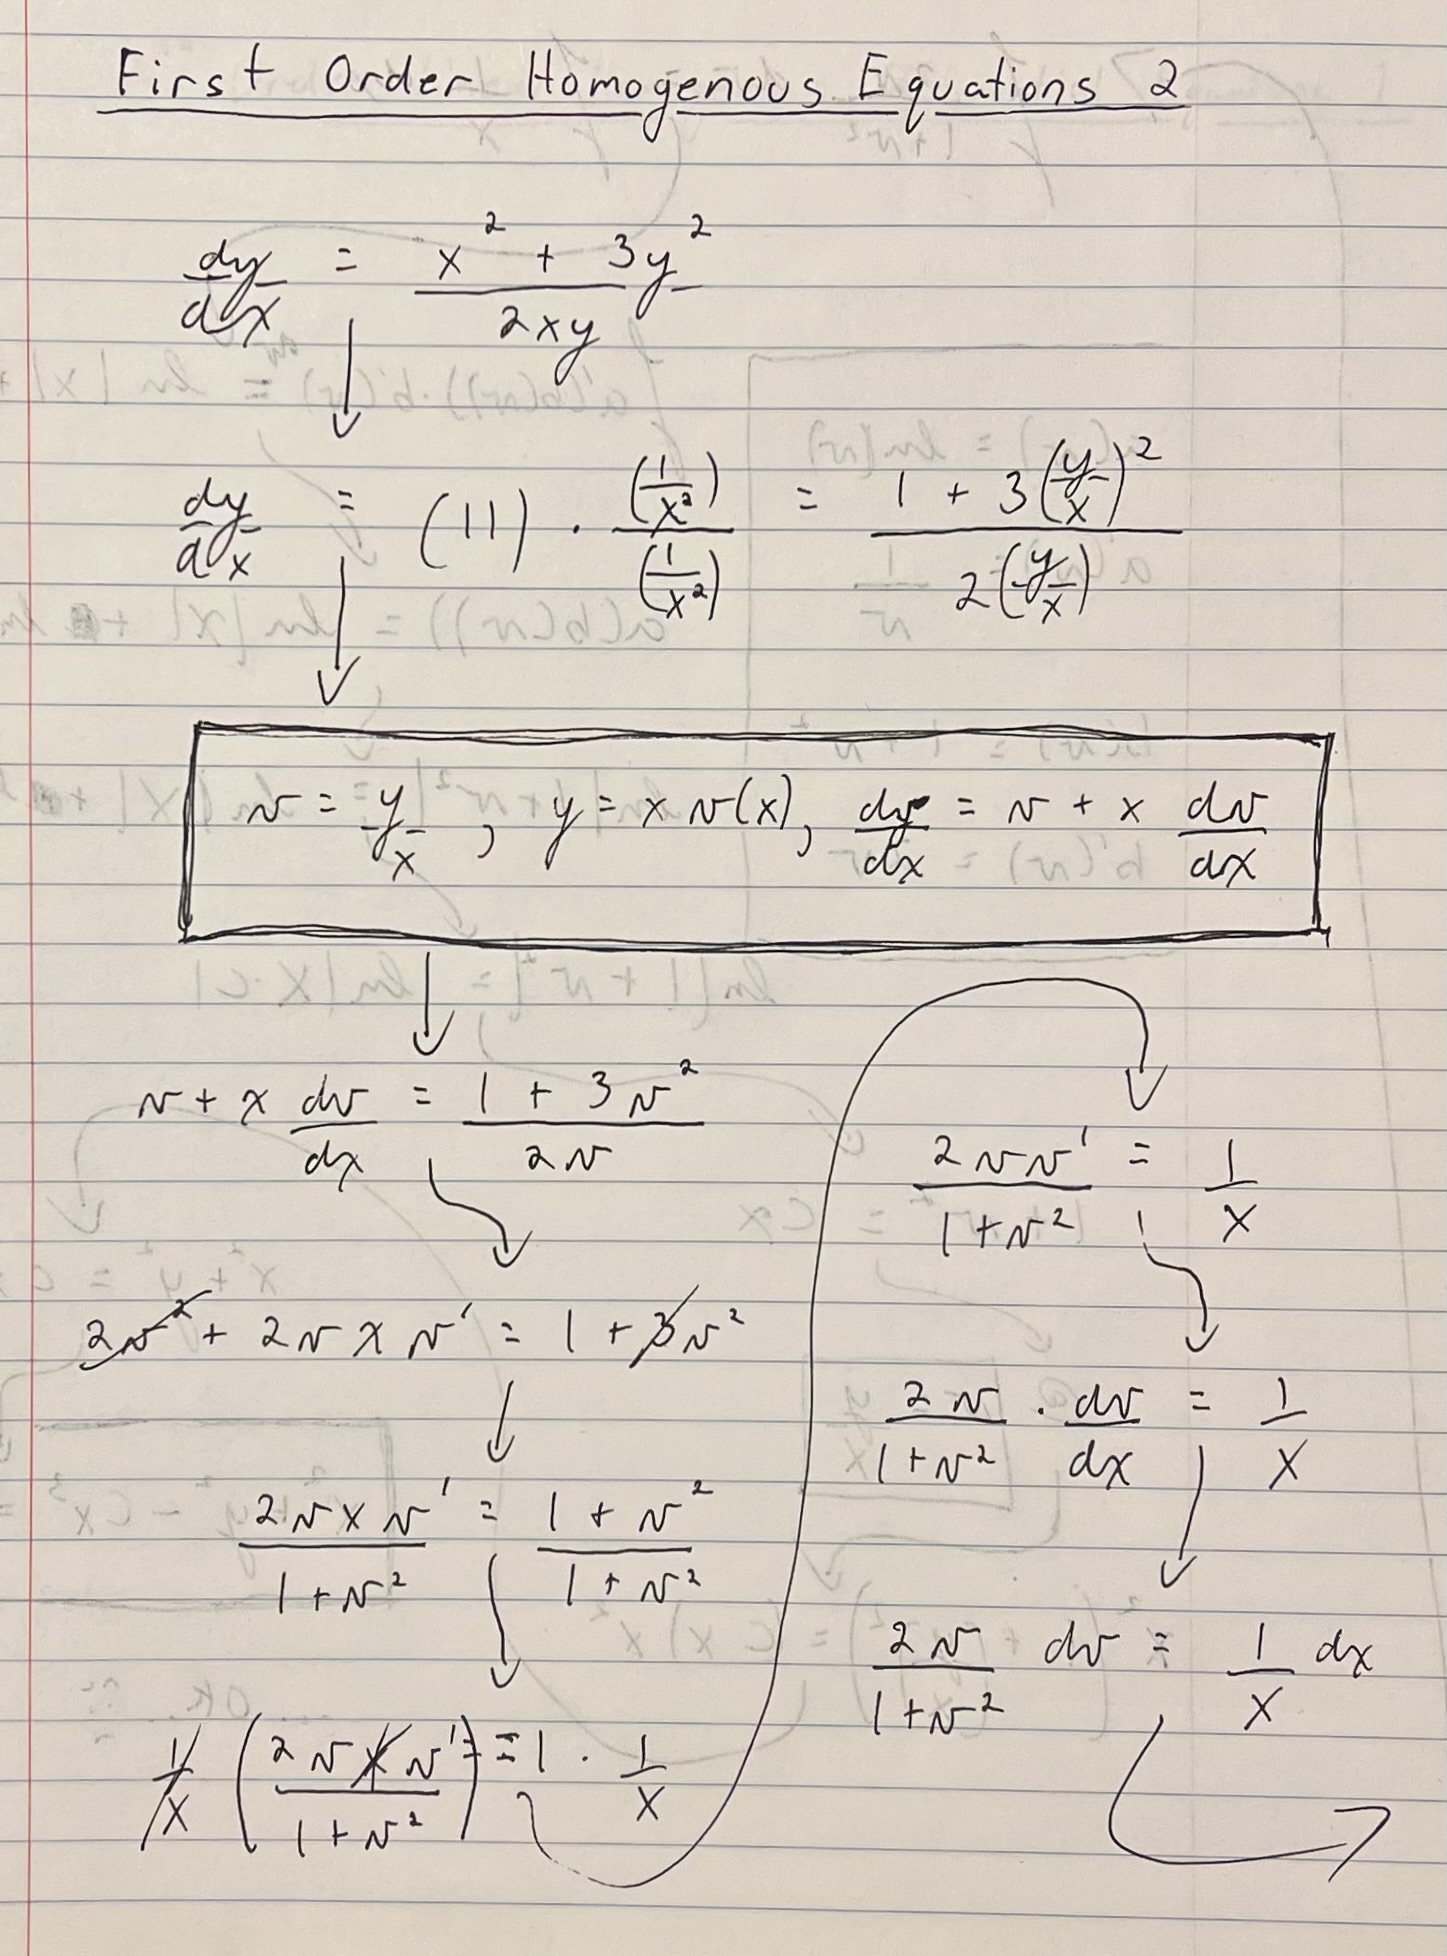 First Order Homogenous Equations 2
dy/dx = (x² + 3y²)/(2xy)
dy/dx = (11) · (1/x²)/(1/x²) = (1 + 3(y/x)²)/(2(y/x))
v = y/x, y = x v(x), dy/dx = v + x dv/dx
v + x dv/dx = (1 + 3v²)/(2v)
2v² + 2v x v' = 1 + 3v²
(2v x v')/(1 + v²) = (1 + v²)/(1 + v²)
1/x ((2v x v')/(1 + v²)) = 1 · 1/x
(2v v')/(1 + v²) = 1/x
(2v)/(1 + v²) · dv/dx = 1/x
(2v)/(1 + v²) dv = 1/x dx